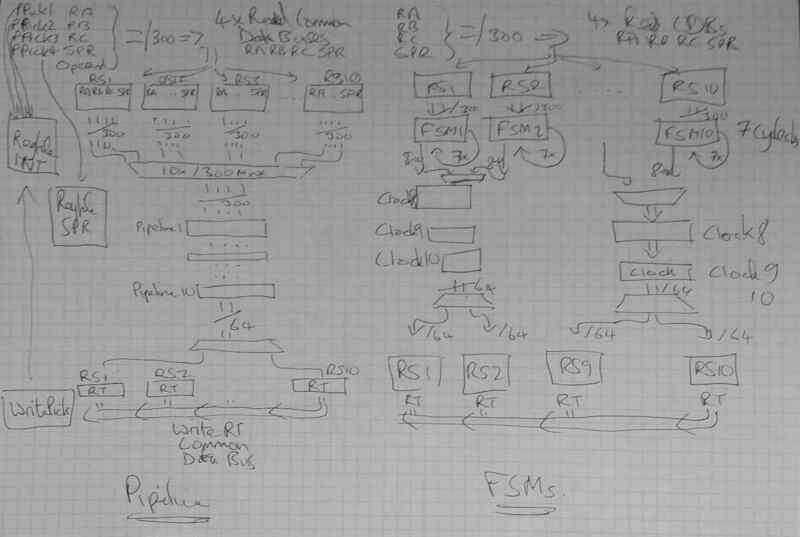 PPick1 RA
PPick2 RB
PPick3 RC
PPick4 SPR
Operand
=/300=>
4x Read Common
Data Buses
RA RB RC SPR
RS1
RS2
RS3
RS10
RA RB RC SPR
RA .. SPR
RA ... SPR
RA ... SPR
300
300
300
300
Regfile
INT
10x/300 mux
300
Regfile
SPR
Pipeline1
Pipeline10
64
RS1
RS2
RS10
RT
RT
RT
WritePick
Write RT
Common
Data Bus
Pipeline
RA
RB
RC
SPR
=/300=>
4x Read CDBs
RA RB RC SPR
RS1
RS2
RS10
/300
/300
/300
FSM1
FSM2
FSM10
7 Cycles
7x
7x
7x
Clock8
Clock9
Clock10
64
/64
/64
Clock8
Clock
Clock9
/64
10
/64
/64
RS1
RS2
RS9
RS10
RT
RT
RT
RT
FSMs.